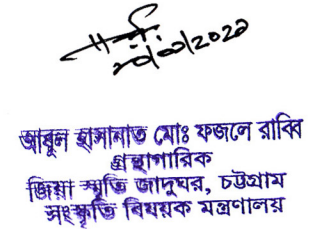 আবুল হাসানাত মোঃ ফজলে রাব্বি
গ্রন্থাগারিক
জিয়া স্মৃতি জাদুঘর, চট্টগ্রাম
সংস্কৃতি বিষয়ক মন্ত্রণালয়